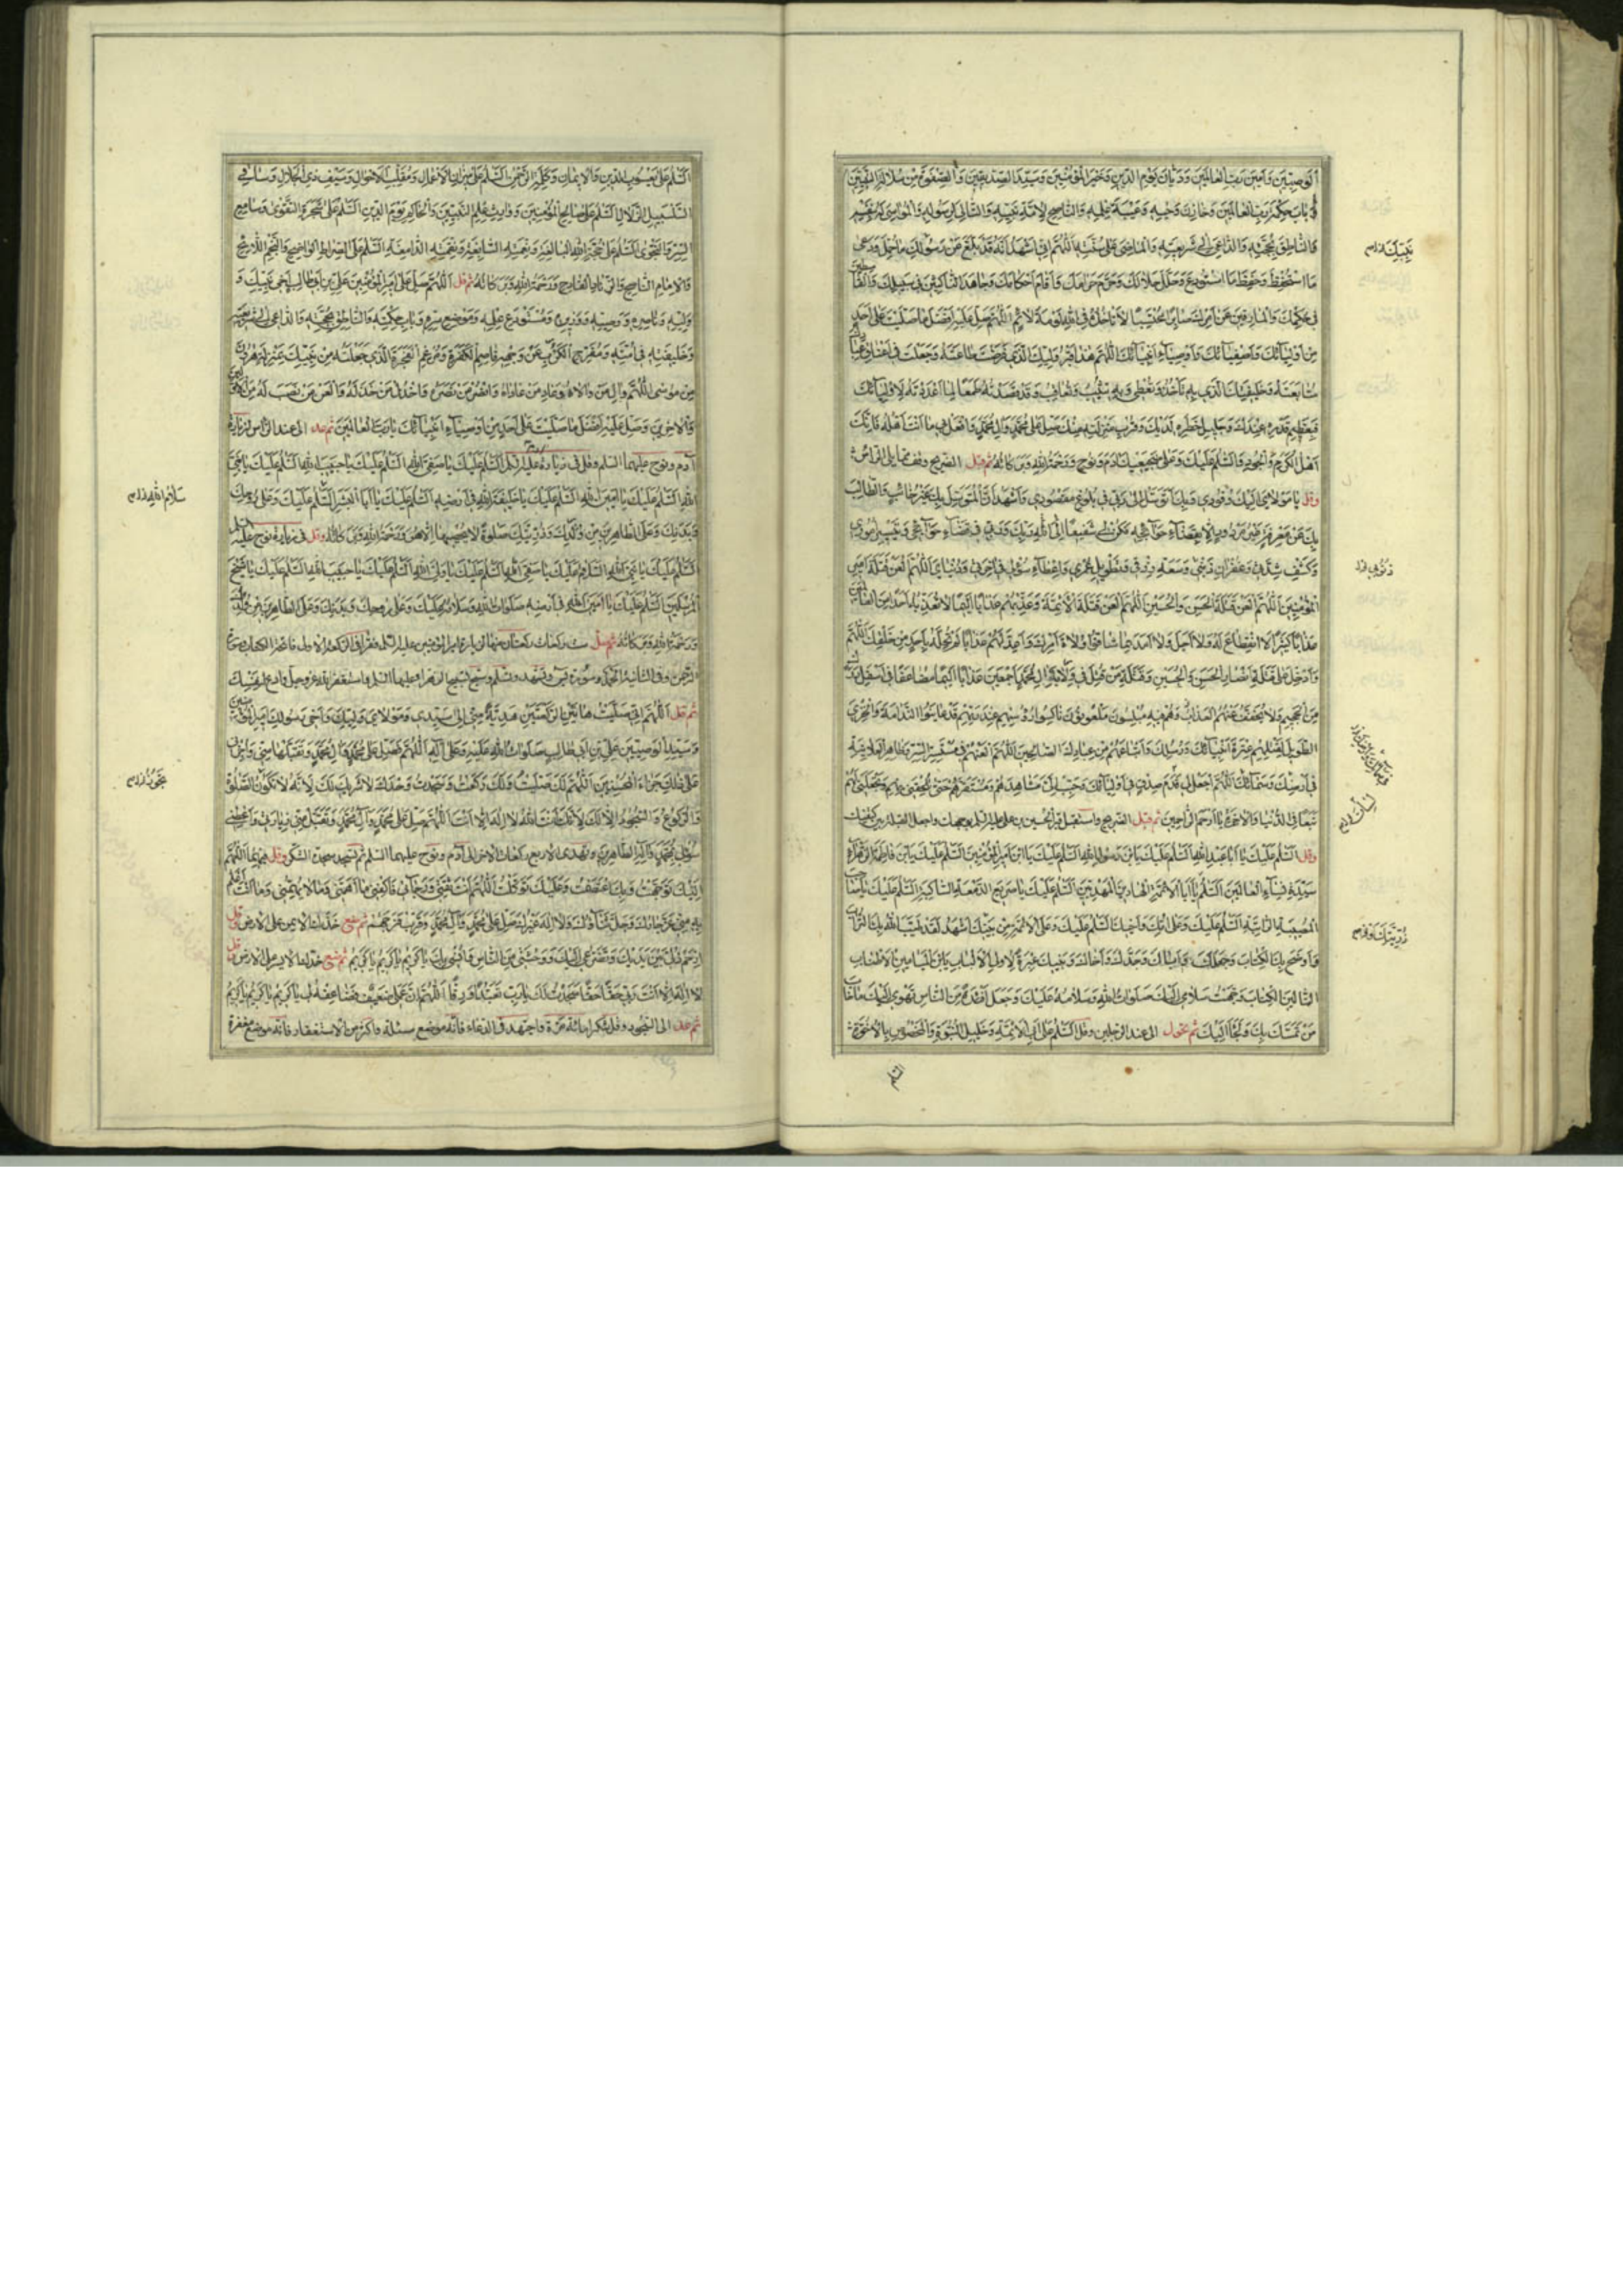 الْوَصِيّينَ وَاَمينَ رَبِّ الْعالَمينَ وَدَيّانَ يَوْمِ الدّينِ وَخَيْرَ الْمُؤْمِنينَ وَسَيِّدَ الصِّدّيقينَ وَالصَّفْوَةَ مِنْ سُلالَةِ النَّبِيّينَ
وَبابَ حِكْمَةِ رَبِّ الْعالَمينَ وَخازِنَ وَحْيِهِ وَعَيْبَةَ عِلْمِهِ وَالنّاصِحَ لِاُمَّةِ نَبِيِّهِ وَالتّالِىَ لِرَسُولِهِ وَالْمُواسِىَ لَهُ بِنَفْسِهِ
وَالنّاطِقَ بِحُجَّتِهِ وَالدّاعِىَ اِلى شَريعَتِهِ وَالْماضِىَ عَلى سُنَّتِهِ اَللّهُمَّ اِنّى اَشْهَدُ اَنَّهُ قَدْ بَلَّغَ عَنْ رَسُولِكَ ما حُمِّلَ وَرَعى
مَا اسْتُحْفِظَ وَحَفِظَ مَا اسْتُودِعَ وَحَلَّلَ حَلالَكَ وَحَرَّمَ حَرامَكَ وَاَقامَ اَحْكامَكَ وَجاهَدَ النّاكِثينَ فى سَبيلِكَ وَالْقاسِطينَ
فى حُكْمِكَ وَالْمارِقينَ عَنْ اَمْرِكَ صابِرًا مُحْتَسِبًا لا تَأْخُذُهُ فى اللهِ لَوْمَةُ لائِمٍ اَللّهُمَّ صَلِّ عَلَيْهِ اَفْضَلَ ما صَلَّيْتَ عَلى اَحَدٍ
مِنْ اَوْلِيائِكَ وَاَصْفِيائِكَ وَاَوْصِياءِ اَنْبِيائِكَ اَللّهُمَّ هذا قَبْرُ وَلِيِّكَ الَّذى فَرَضْتَ طاعَتَهُ وَجَعَلْتَ فى اَعْناقِ عِبادِكَ
مُتابَعَتَهُ وَخَليفَتِكَ الَّذى بِهِ تَأْخُذُ وَتُعْطى وَبِهِ تُثيبُ وَتُعاقِبُ وَقَدْ قَصَدْتُهُ طَمَعًا لِما اَعْدَدْتَهُ لِاَوْلِيائِكَ
فَبِعَظيمِ قَدْرِهِ عِنْدَكَ وَجَليلِ خَطَرِهِ لَدَيْكَ وَقُرْبِ مَنْزِلَتِهِ مِنْكَ صَلِّ عَلى مُحَمَّدٍ وَالِ مُحَمَّدٍ وَافْعَلْ بى ما اَنْتَ اَهْلُهُ فَاِنَّكَ
اَهْلُ الْكَرَمِ وَالْجُودِ وَالسَّلامُ عَلَيْكَ وَعَلى ضَجيعَيْكَ ادَمَ وَنُوحٍ وَرَحْمَةُ اللهِ وَبَرَكاتُهُ ثم قبل الضريح وقف مما يلى الراس
وقل يا مَوْلاىَ اِلَيْكَ وُفُودى وَبِكَ اَتَوَسَّلُ اِلى رَبّى فى بُلُوغِ مَقْصُودى وَاَشْهَدُ اَنَّ الْمُتَوَسِّلَ بِكَ غَيْرُ خائِبٍ وَالطّالِبَ
بِكَ عَنْ مَعْرِفَةٍ غَيْرُ مَرْدُودٍ اِلاّ بِقَضاءِ حَوائِجِهِ فَكُنْ لى شَفيعًا اِلَى اللهِ رَبِّكَ وَرَبّى فى قَضاءِ حَوائِجى وَتَيْسيرِ اُمُورى
وَكَشْفِ شِدَّتى وَغُفْرانِ ذَنْبى وَسَعَةِ رِزْقى وَتَطْويلِ عُمْرى وَاِعْطاءِ سُؤْلى فى اخِرَتى وَدُنْياىَ اَللّهُمَّ الْعَنْ قَتَلَةَ اَميرِ
الْمُؤْمِنينَ اَللّهُمَّ الْعَنْ قَتَلَةَ الْحَسَنِ وَالْحُسَيْنِ اَللّهُمَّ الْعَنْ قَتَلَةَ الْاَئِمَّةِ وَعَذِّبْهُمْ عَذابًا اَليمًا لا تُعَذِّبُهُ اَحَدًا مِنَ الْعالَمينَ
عَذابًا كَثيرًا لاَ انْقِطاعَ لَهُ وَلا اَجَلَ وَلا اَمَدَ بِما شاقُّوا وُلاةَ اَمْرِكَ وَاَعِدَّ لَهُمْ عَذابًا لَمْ تُحِلَّهُ بِاَحَدٍ مِنْ خَلْقِكَ اَللّهُمَّ
وَاَدْخِلْ عَلى قَتَلَةِ اَنْصارِ الْحَسَنِ وَالْحُسَيْنِ وَقَتَلَةِ مَنْ قُتِلَ فى وِلايَةِ الِ مُحَمَّدٍ اَجْمَعينَ عَذابًا اَليمًا مُضاعَفًا فى اَسْفَلِ دَرَكٍ
مِنَ الْجَحيمِ وَلا يُخَفَّفُ عَنْهُمُ الْعَذابُ وَهُمْ فيهِ مُبْلِسُونَ مَلْعُونُونَ ناكِسُوا رُؤُسِهِمْ عِنْدَ رَبِّهِمْ قَدْ عايَنُوا النَّدامَةَ وَالْخِزْىَ
الطَّويلَ لِقَتْلِهِمْ عِتْرَةَ اَنْبِيائِكَ وَرُسُلِكَ وَاَتْباعَهُمْ مِنْ عِبادِكَ الصّالِحينَ اَللّهُمَّ الْعَنْهُمْ فى مُسْتَسِرِّ السِّرِّ وَظاهِرِ الْعَلانِيَةِ
فى اَرْضِكَ وَسَمائِكَ اَللّهُمَّ اجْعَلْ لى قَدَمَ صِدْقٍ فى اَوْلِيائِكَ وَحَبِّبْ اِلَىَّ مَشاهِدَهُمْ وَمُسْتَقَرَّهُمْ حَتّى تُلْحِقَنى بِهِمْ وَتَجْعَلَنى لَهُمْ
تَبَعًا فِى الدُّنْيا وَالْاخِرَةِ يا اَرْحَمَ الرّاحِمينَ ثم قبل الضريح واستقبل قبر الحسين بن على عليه السلم بوجهك واجعل القبلة بين كتفيك
وقل اَلسَّلمُ عَلَيْكَ يا اَبا عَبْدِ اللهِ اَلسَّلمُ عَلَيْكَ يَا ابْنَ رَسُولِ اللهِ اَلسَّلمُ عَلَيْكَ يَا ابْنَ اَميرِ الْمُؤْمِنينَ اَلسَّلمُ عَلَيْكَ يَا ابْنَ فاطِمَةَ الزَّهْراءِ
سَيِّدَةِ نِساءِ الْعالَمينَ اَلسَّلمُ يا اَبَا الْاَئِمَّةِ الْهادينَ الْمَهْدِيّينَ اَلسَّلمُ عَلَيْكَ يا صَريعَ الدَّمْعَةِ السّاكِبَةِ اَلسَّلمُ عَلَيْكَ يا صاحِبَ
الْمُصيبَةِ الرّاتِبَةِ اَلسَّلمُ عَلَيْكَ وَعَلى اُمِّكَ وَاَخيكَ اَلسَّلمُ عَلَيْكَ وَعَلَى الْاَئِمَّةِ مِنْ بَنيكَ اَشْهَدُ لَقَدْ طَيَّبَ اللهُ بِكَ التُّرابَ
وَاَوْضَحَ بِكَ الْكِتابَ وَجَعَلَكَ وَاَباكَ وَجَدَّكَ وَاَخاكَ وَبَنيكَ عِبْرَةً لِاُولِى الْاَلْبابِ يَا ابْنَ الْمَيامينِ الْاَطْيابِ
التّالينَ الْكِتابَ وَجَّهْتُ سَلامى اِلَيْكَ صَلَواتُ اللهِ وَسَلامُهُ عَلَيْكَ وَجَعَلَ اَفْئِدَةً مِنَ النّاسِ تَهْوى اِلَيْكَ ما خابَ
مَنْ تَمَسَّكَ بِكَ وَلَجَأَ اِلَيْكَ ثم تحول الى عند الرجلين وقل اَلسَّلمُ عَلى اَبِى الْاَئِمَّةِ وَخَليلِ النُّبُوَّةِ وَالْمَخْصُوصِ بِالْاُخُوَّةِ
السلم
اَلسَّلمُ عَلى يَعْسُوبِ الدّينِ وَالْايمانِ وَكَلِمَةِ الرَّحْمنِ اَلسَّلمُ عَلى ميزانِ الْاَعْمالِ وَمُقَلِّبِ الْاَحْوالِ وَسَيْفِ ذِى الْجَلالِ وَساقى
السَّلْسَبيلِ الزُّلالِ اَلسَّلمُ عَلى صالِحِ الْمُؤْمِنينَ وَوارِثِ عِلْمِ النَّبِيّينَ وَالْحاكِمِ يَوْمَ الدّينِ اَلسَّلمُ عَلى شَجَرَةِ التَّقْوى وَسامِعِ
السِّرِّ وَالنَّجْوى اَلسَّلمُ عَلى حُجَّةِ اللهِ الْبالِغَةِ وَنِعْمَتِهِ السّابِغَةِ وَنِقْمَتِهِ الدّامِغَةِ اَلسَّلمُ عَلَى الصِّراطِ الْواضِحِ وَالنَّجْمِ اللاّئِحِ
وَالْاِمامِ النّاصِحِ وَالزِّنادِ الْقادِحِ وَرَحْمَةُ اللهِ وَبَرَكاتُهُ ثم قل اَللّهُمَّ صَلِّ عَلى اَميرِ الْمُؤْمِنينَ عَلِىِّ بْنِ اَبى طالِبٍ اَخى نَبِيِّكَ وَ
وَلِيِّهِ وَناصِرِهِ وَوَصِيِّهِ وَوَزيرِهِ وَمُسْتَوْدَعِ عِلْمِهِ وَمَوْضِعِ سِرِّهِ وَبابِ حِكْمَتِهِ وَالنّاطِقِ بِحُجَّتِهِ وَالدّاعى اِلى شَريعَتِهِ
وَخَليفَتِهِ فى اُمَّتِهِ وَمُفَرِّجِ الْكَرْبِ عَنْ وَجْهِهِ قاصِمِ الْكَفَرَةِ وَمُرْغِمِ الْفَجَرَةِ الَّذى جَعَلْتَهُ مِنْ نَبِيِّكَ بِمَنْزِلَةِ هرُونَ
مِنْ مُوسى اَللّهُمَّ والِ مَنْ والاهُ وَعادِ مَنْ عاداهُ وَانْصُرْ مَنْ نَصَرَهُ وَاخْذُلْ مَنْ خَذَلَهُ وَالْعَنْ مَنْ نَصَبَ لَهُ مِنَ الْاَوَّلينَ
وَالْاخِرينَ وَصَلِّ عَلَيْهِ اَفْضَلَ ما صَلَّيْتَ عَلى اَحَدٍ مِنْ اَوْصِياءِ اَنْبِيائِكَ يا رَبَّ الْعالَمينَ ثم عد الى عند الراس لزيارة
آدم ونوح عليهما السلم وقل فى زيارة آدم عليه السلم اَلسَّلمُ عَلَيْكَ يا صَفِىَّ اللهِ اَلسَّلمُ عَلَيْكَ يا حَبيبَ اللهِ اَلسَّلمُ عَلَيْكَ يا نَبِىَّ
اللهِ اَلسَّلمُ عَلَيْكَ يا اَمينَ اللهِ اَلسَّلمُ عَلَيْكَ يا خَليفَةَ اللهِ فى اَرْضِهِ اَلسَّلمُ عَلَيْكَ يا اَبَا الْبَشَرِ اَلسَّلمُ عَلَيْكَ وَعَلى رُوحِكَ
وَبَدَنِكَ وَعَلَى الطّاهِرينَ مِنْ وُلْدِكَ وَذُرِّيَّتِكَ صَلوةً لا يُحْصيها اِلاّ هُوَ وَرَحْمَةُ اللهِ وَبَرَكاتُهُ وقل فى زيارة نوح عليه السلم
اَلسَّلمُ عَلَيْكَ يا نَبِىَّ اللهِ اَلسَّلامُ عَلَيْكَ يا صَفِىَّ اللهِ اَلسَّلمُ عَلَيْكَ يا وَلِىَّ اللهِ اَلسَّلمُ عَلَيْكَ يا حَبيبَ اللهِ اَلسَّلمُ عَلَيْكَ يا شَيْخَ
الْمُرْسَلينَ اَلسَّلمُ عَلَيْكَ يا اَمينَ اللهِ فى اَرْضِهِ صَلَواتُ اللهِ وَسَلامُهُ عَلَيْكَ وَعَلى رُوحِكَ وَبَدَنِكَ وَعَلَى الطّاهِرينَ مِنْ وُلْدِكَ
وَرَحْمَةُ اللهِ وَبَرَكاتُهُ ثم صل ست ركعات ركعتان منها لزيارة امير المؤمنين عليه السلم فقرأ فى الركعة الاولى فاتحة الكتاب وسورة
الرحمن وفى الثانية الحمد وسورة يس وتشهد وتسلم وسبح تسبيح الزهراء عليها السلم واستغفر الله عز وجل وادع لنفسك
ثم قل اَللّهُمَّ اِنّى صَلَّيْتُ هاتَيْنِ الرَّكْعَتَيْنِ هَدِيَّةً مِنّى اِلى سَيِّدى وَمَوْلاىَ وَلِيِّكَ وَاَخى رَسُولِكَ اَميرِ الْمُؤْمِنينَ
وَسَيِّدِ الْوَصِيّينَ عَلِىِّ بْنِ اَبى طالِبٍ صَلَواتُ اللهِ عَلَيْهِ وَعَلى الِهِ اَللّهُمَّ فَصَلِّ عَلى مُحَمَّدٍ وَالِ مُحَمَّدٍ وَتَقَبَّلْها مِنّى وَاجْزِنى
عَلى ذلِكَ جَزاءَ الْمُحْسِنينَ اَللّهُمَّ لَكَ صَلَّيْتُ وَلَكَ رَكَعْتُ وَسَجَدْتُ وَحْدَكَ لا شَريكَ لَكَ لِاَنَّهُ لا تَكُونُ الصَّلوةُ
وَالرُّكُوعُ وَالسُّجُودُ اِلاّ لَكَ لِاَنَّكَ اَنْتَ اللهُ لا اِلهَ اِلاّ اَنْتَ اَللّهُمَّ صَلِّ عَلى مُحَمَّدٍ وَآلِ مُحَمَّدٍ وَتَقَبَّلْ مِنّى زِيارَتى وَاَعْطِنى
سُؤْلى بِمُحَمَّدٍ وَآلِهِ الطّاهِرينَ وتهدى الاربع ركعات الاخرى لآدم ونوح عليهما السلم ثم تسجد سجدة الشكر وقل فيها اَللّهُمَّ
اِلَيْكَ تَوَجَّهْتُ وَبِكَ اعْتَصَمْتُ وَعَلَيْكَ تَوَكَّلْتُ اَللّهُمَّ اَنْتَ ثِقَتى وَرَجائى فَاكْفِنى ما اَهَمَّنى وَما لا يُهِمُّنى وَما اَنْتَ اَعْلَمُ
بِهِ مِنّى عَزَّ جارُكَ وَجَلَّ ثَناؤُكَ وَلا اِلهَ غَيْرُكَ صَلِّ عَلى مُحَمَّدٍ وَآلِ مُحَمَّدٍ وَقَرِّبْ فَرَجَهُمْ ثم تضع خدك الايمن على الارض وقل
اِرْحَمْ ذُلّى بَيْنَ يَدَيْكَ وَتَضَرُّعى اِلَيْكَ وَوَحْشَتى مِنَ النّاسِ وَاُنْسى بِكَ يا كَريمُ يا كَريمُ يا كَريمُ ثم تضع خدك الايسر على الارض وقل
لا اِلهَ اِلاّ اَنْتَ رَبّى حَقًّا حَقًّا سَجَدْتُ لَكَ يا رَبِّ تَعَبُّدًا وَرِقًّا اَللّهُمَّ اِنَّ عَمَلى ضَعيفٌ فَضاعِفْهُ لى يا كَريمُ يا كَريمُ يا كَريمُ
ثم عد الى السجود وقل شكرا مائة مرة واجتهد فى الدعاء فانه موضع مسئلة واكثر من الاستغفار فانه موضع مغفرة